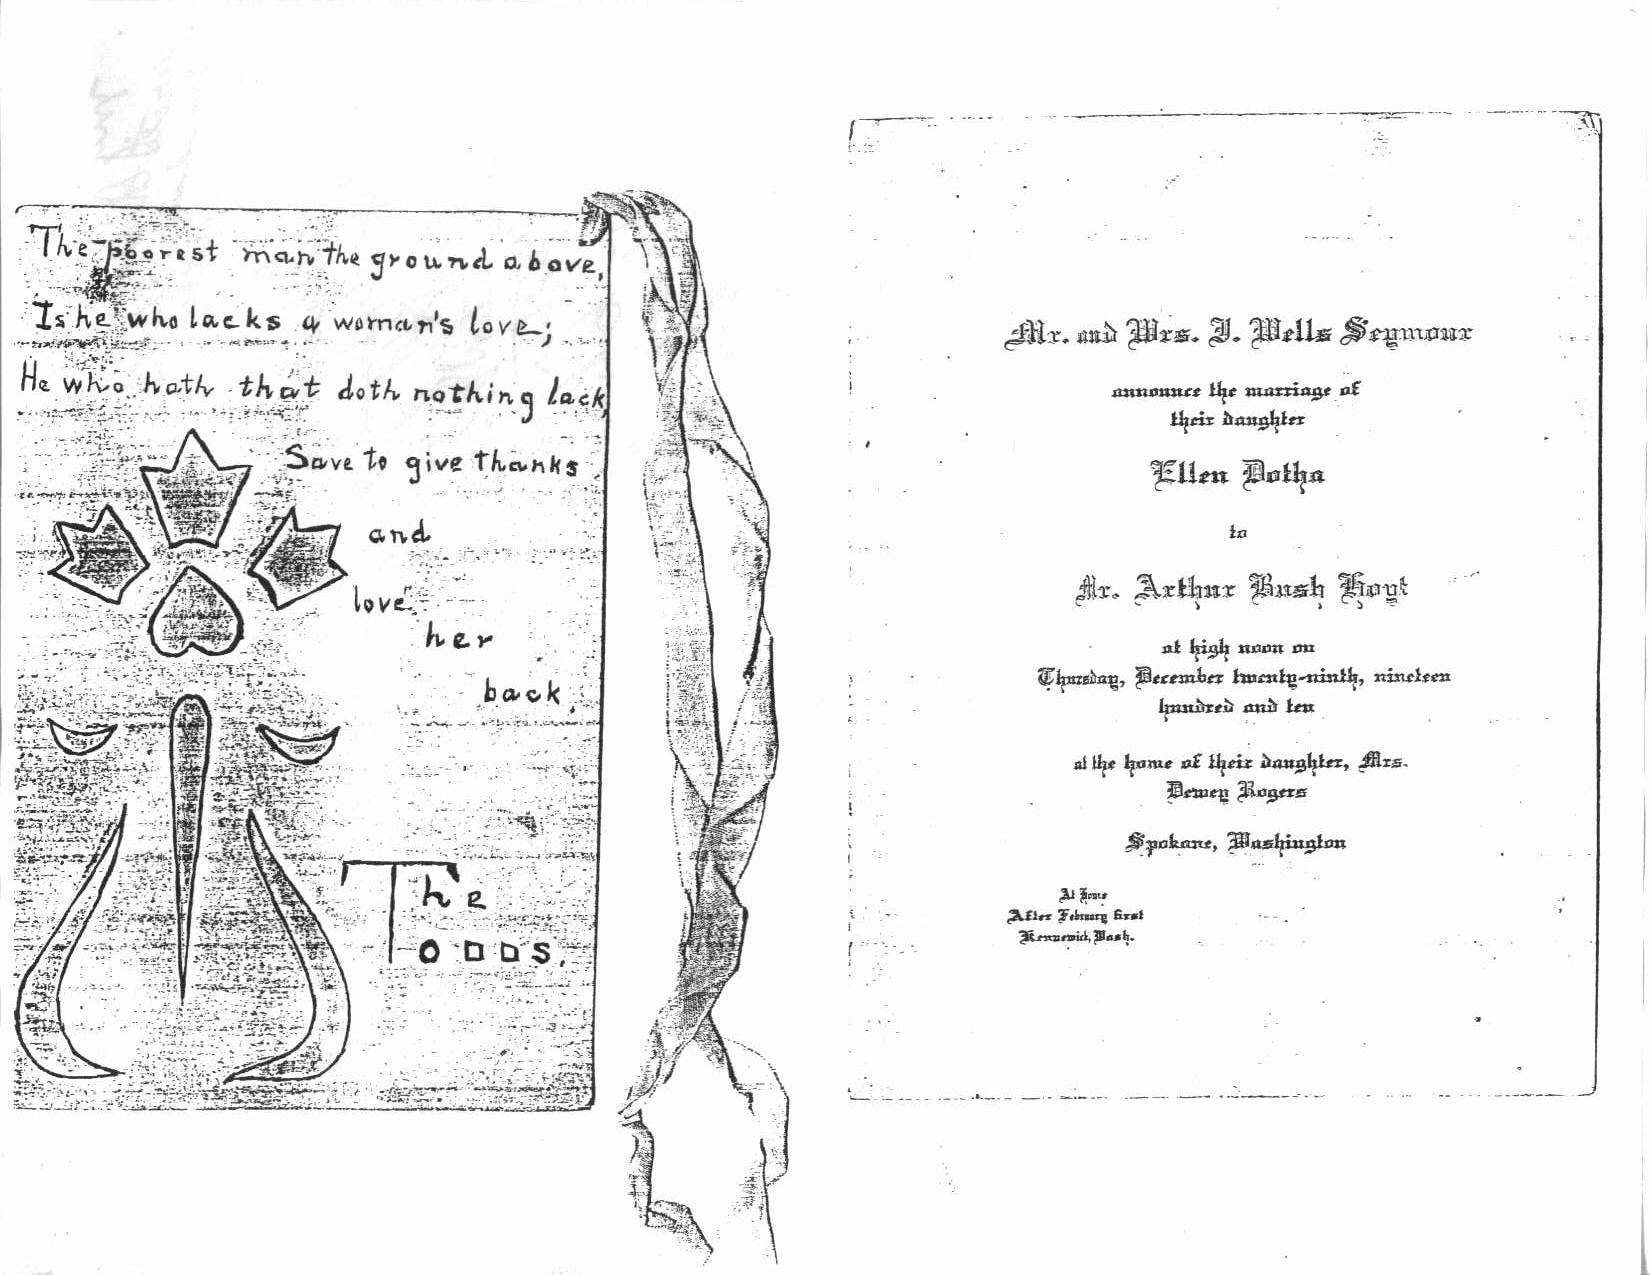 The poorest man the ground above,
Is he who lacks a woman's love;
He who hath that doth nothing lack,
Save to give thanks
and
love
her
back.
The
Todds.
Mr. and Mrs. J. Wells Seymour
announce the marriage of
their daughter
Ellen Dotha
to
Mr. Arthur Bush Hoyt
at high noon on
Thursday, December twenty-ninth, nineteen
hundred and ten
at the home of their daughter, Mrs.
Dewey Rogers
Spokane, Washington
At Home
After February first
Kennewick, Wash.